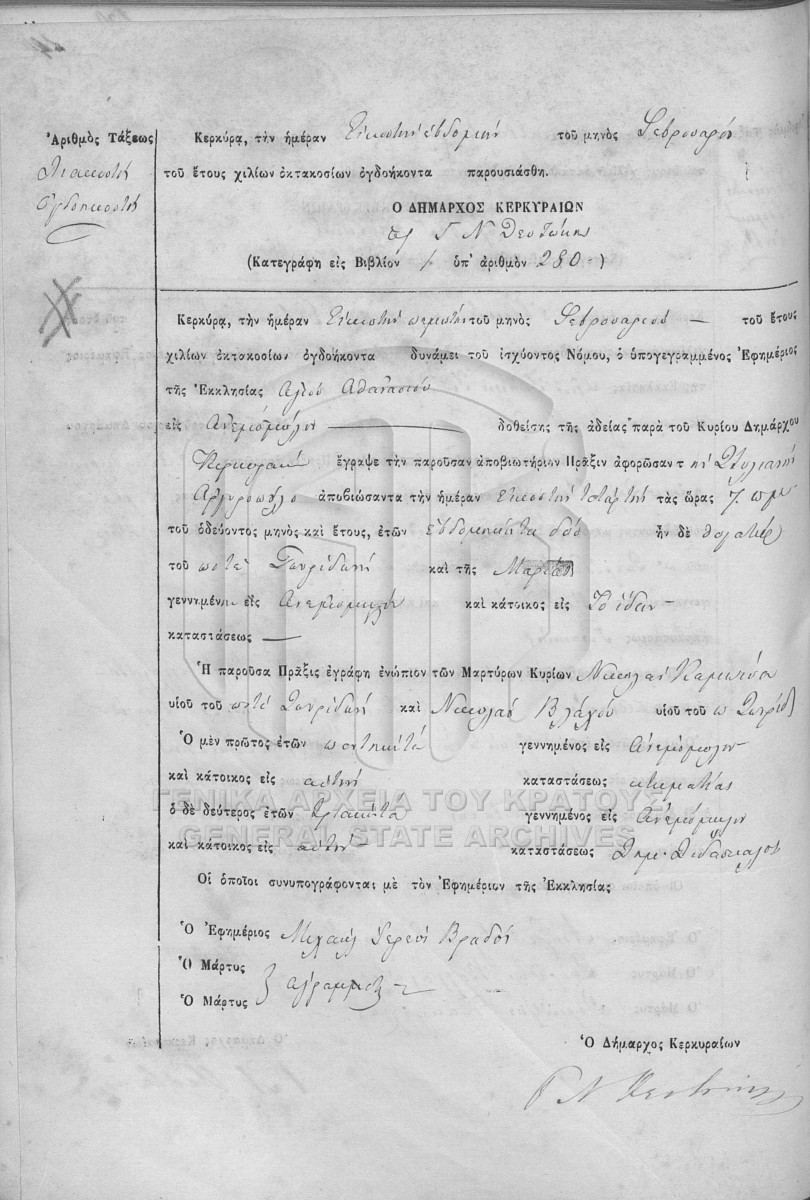 Ἀριθμὸς Τάξεως
ὀγδοηκοστή
Κερκύρᾳ, τὴν ἡμέραν Εἰκοστὴν ἑβδόμην τοῦ μηνὸς Φεβρουαρίου
τοῦ ἔτους χιλίων ὀκτακοσίων ὀγδοήκοντα παρουσιάσθη.
Ο ΔΗΜΑΡΧΟΣ ΚΕΡΚΥΡΑΙΩΝ
Γ Ν Θεοτόκης
(Κατεγράφη εἰς Βιβλίον ὑπ' ἀριθμὸν 280)
Κερκύρᾳ, τὴν ἡμέραν Εἰκοστὴν πέμπτην τοῦ μηνὸς Φεβρουαρίου — τοῦ ἔτους
χιλίων ὀκτακοσίων ὀγδοήκοντα δυνάμει τοῦ ἰσχύοντος Νόμου, ὁ ὑπογεγραμμένος Ἐφημέριος
τῆς Ἐκκλησίας Αγίου Αθανασίου
εἰς Ανεμόμυλον — δοθείσης τῆς ἀδείας παρὰ τοῦ Κυρίου Δημάρχου
ἔγραψε τὴν παροῦσαν ἀποβιωτήριον Πρᾶξιν ἀφορῶσαν τ ην Στυλιανὴ
Αργυροπούλο ἀποβιώσαντα τὴν ἡμέραν εἰκοστὴν τετάρτην τὰς ὥρας 7. π.μ.
τοῦ ὁδεύοντος μηνὸς καὶ ἔτους, ἐτῶν εὐδομηκόντα δύο ἦν δὲ θυγατηρ
τοῦ ποτὲ Σπυρίδωνος καὶ τῆς Μαρίας
γεννημένη εἰς Ανεμόμυλον καὶ κάτοικος εἰς Το ίδιον —
καταστάσεως —
Ἡ παροῦσα Πρᾶξις ἐγράφη ἐνώπιον τῶν Μαρτύρων Κυρίων Νικολάου
υἱοῦ τοῦ ποτὲ Σπυρίδωνος καὶ Νικολάου Βλάχου υἱοῦ τοῦ π Σπυρίδ
Ὁ μὲν πρῶτος ἐτῶν πεντηκόντα γεννημένος εἰς Ανεμόμυλον
καὶ κάτοικος εἰς αὐτὴν καταστάσεως κτηματίας
ὁ δὲ δεύτερος ἐτῶν τριακόντα γεννημένος εἰς Ανεμόμυλον
καὶ κάτοικος εἰς αὐτὴν καταστάσεως Δημ. Διδάσκαλος
Οἱ ὁποῖοι συνυπογράφονται μὲ τὸν Ἐφημέριον τῆς Ἐκκλησίας
Ὁ Ἐφημέριος Μιχαὴλ Ἱερεὺς
Ὁ Μάρτυς
Ὁ Μάρτυς
Ὁ Δήμαρχος Κερκυραίων
Γ Ν Θεοτόκης
ΓΕΝΙΚΑ ΑΡΧΕΙΑ ΤΟΥ ΚΡΑΤΟΥΣ
GENERAL STATE ARCHIVES